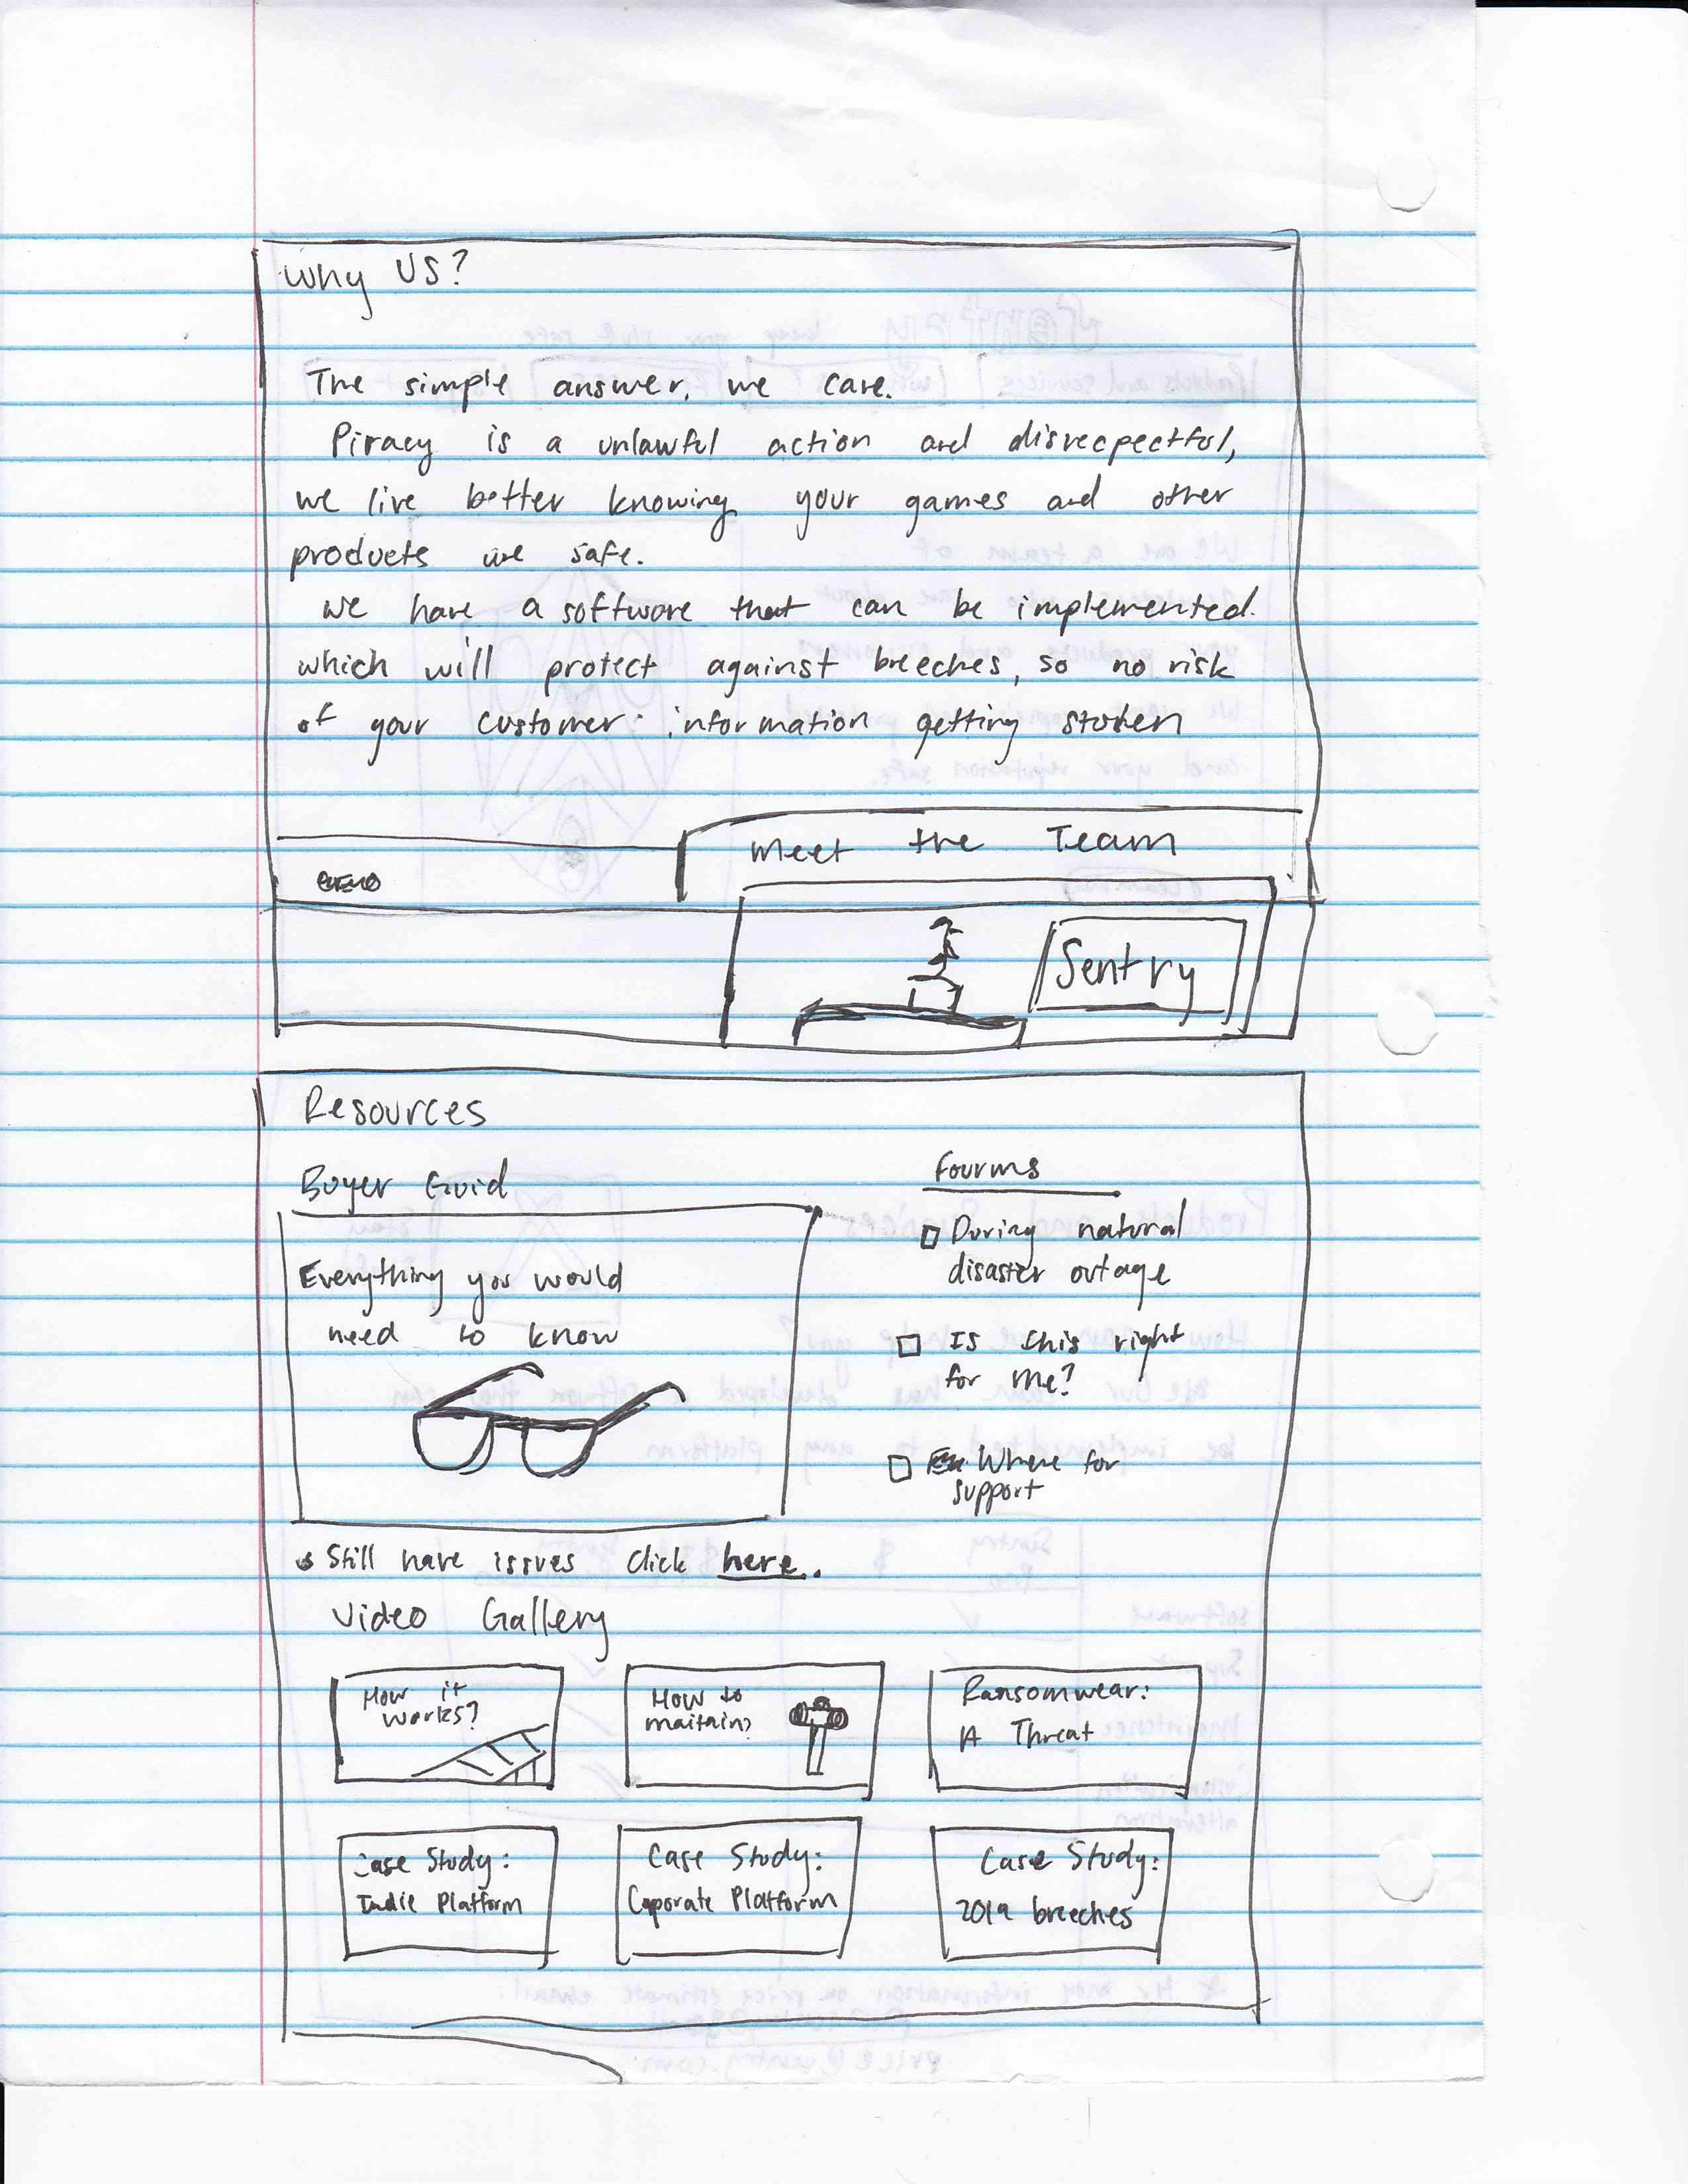 Why US?
The simple answer, we care.
Piracy is a unlawful action and disrecpectful,
we live better knowing your games and other
products are safe.
we have a software that can be implemented.
which will protect against breeches, so no risk
of your customer information getting stolen
Meet the Team
Sentry
Resources
Buyer Guid
Everything you would
need to know
Fourms
During natural
disaster outage
Is this right
for me?
Where for
support
Still have issues click here.
Video Gallery
How it
works?
How to
maitain?
Ransomwear:
A Threat
Case Study:
Indie Platform
Case Study:
Coporate Platform
Case Study:
2019 breeches